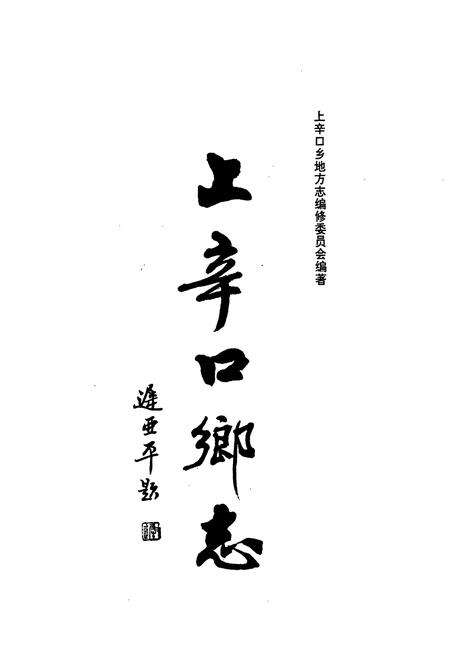 上辛口乡地方志编修委员会编著
上辛口鄉志
遲亚平题